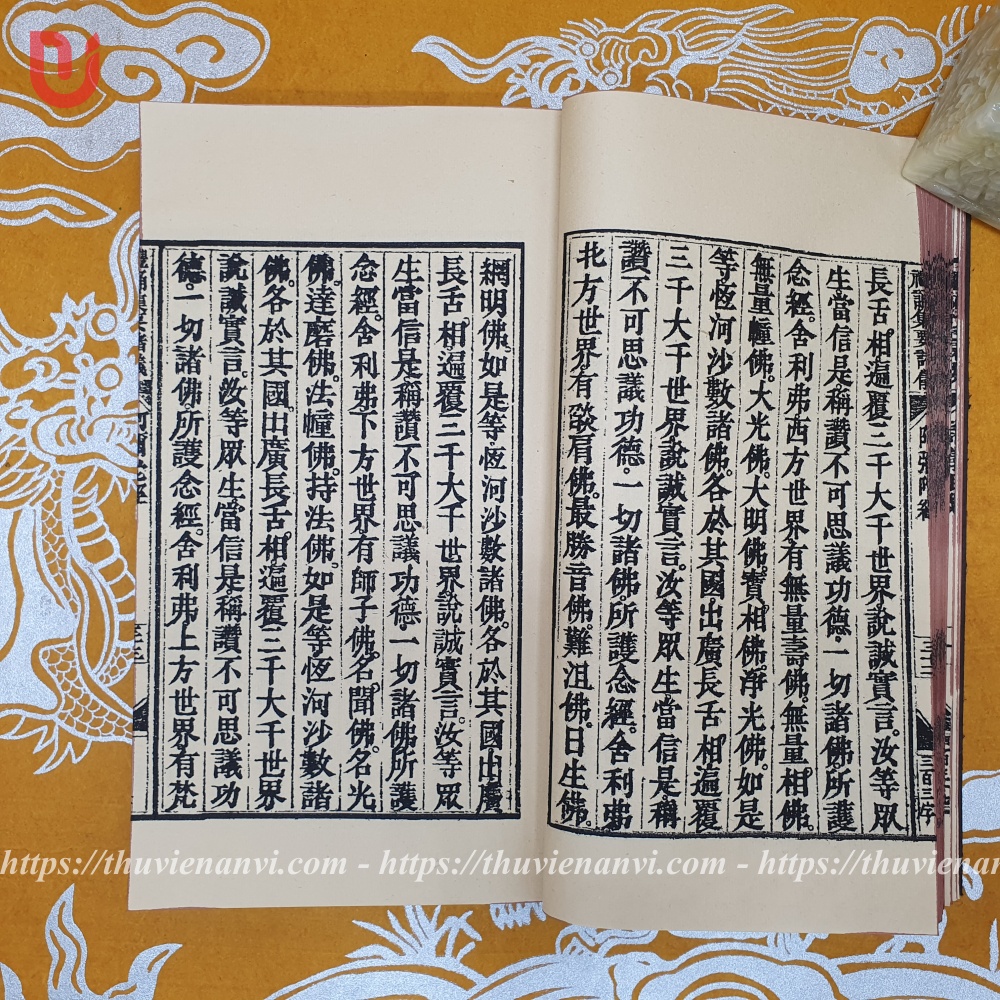 長舌相。遍覆三千大千世界。說誠實言。汝等眾
生當信是稱讚不可思議功德。一切諸佛。所護
念經。舍利弗。西方世界。有無量壽佛。無量相佛。
無量幢佛。大光佛。大明佛。寶相佛。淨光佛。如是
等恆河沙數諸佛。各於其國出廣長舌相。遍覆
三千大千世界。說誠實言。汝等眾生。當信是稱
讚不可思議功德。一切諸佛。所護念經。舍利弗。
北方世界。有燄肩佛。最勝音佛。難沮佛。日生佛。
網明佛。如是等。恆河沙數諸佛。各於其國出廣
長舌。相遍覆三千大千世界。說誠實言。汝等眾
生當信是稱讚不可思議功德。一切諸佛所護
念經。舍利弗。下方世界。有師子佛。名聞佛。名光
佛。達磨佛。法幢佛。持法佛。如是等恆河沙數諸
佛。各於其國。出廣長舌。相遍覆三千大千世界
說誠實言。汝等眾生。當信是稱讚不可思議功
德。一切諸佛。所護念經。舍利弗。上方世界。有梵
https://thuvienanvi.com - https://thuvienanvi.com - https://thuvienanvi